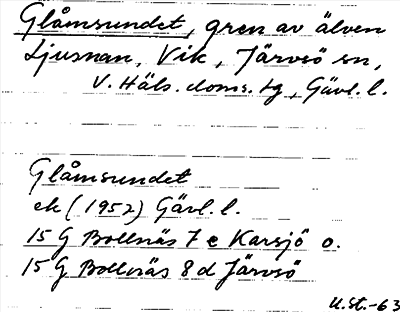 Glåmsundet, gren av älven
Ljusnan, Vik, Järvsö sn,
V. Häls. doms. tg, Gävl. l.
Glåmsundet
ek (1952) Gävl. l.
15 G Bollnäs 7 e Karsjö o.
15 G Bollnäs 8 d Järvsö
U.St.-63